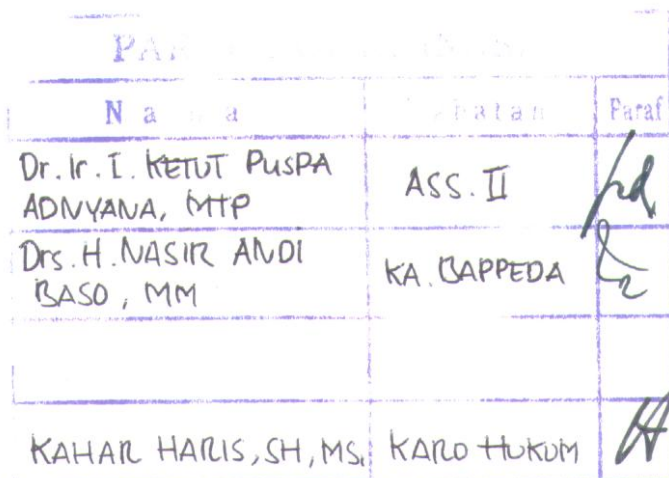 N a m a Jabatan Paraf
Dr. Ir. I. KETUT PUSPA
ADNYANA, MTP
ASS. II
Drs. H. NASIR ANDI
BASO, MM
KA. BAPPEDA
KAHAR HARIS, SH, MS. KARO HUKUM